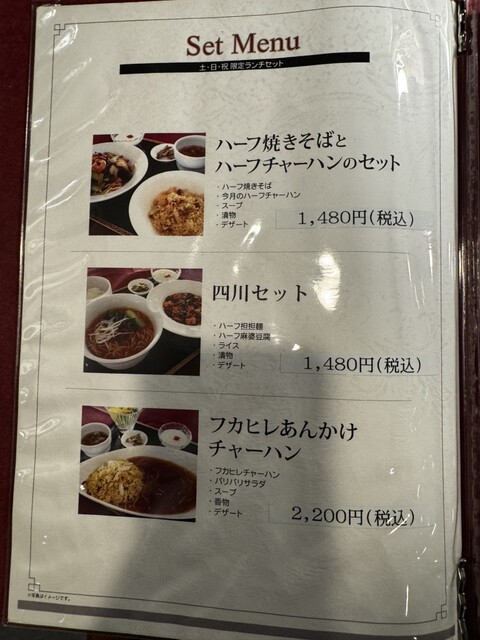 Set Menu
土・日・祝 限定ランチセット
ハーフ焼きそばと
ハーフチャーハンのセット
・ハーフ焼きそば
・今月のハーフチャーハン
・スープ
・漬物
・デザート
1,480円(税込)
四川セット
・ハーフ担担麺
・ハーフ麻婆豆腐
・ライス
・漬物
・デザート
1,480円(税込)
フカヒレあんかけ
チャーハン
・フカヒレチャーハン
・パリパリサラダ
・スープ
・香物
・デザート
2,200円(税込)
※写真はイメージです。